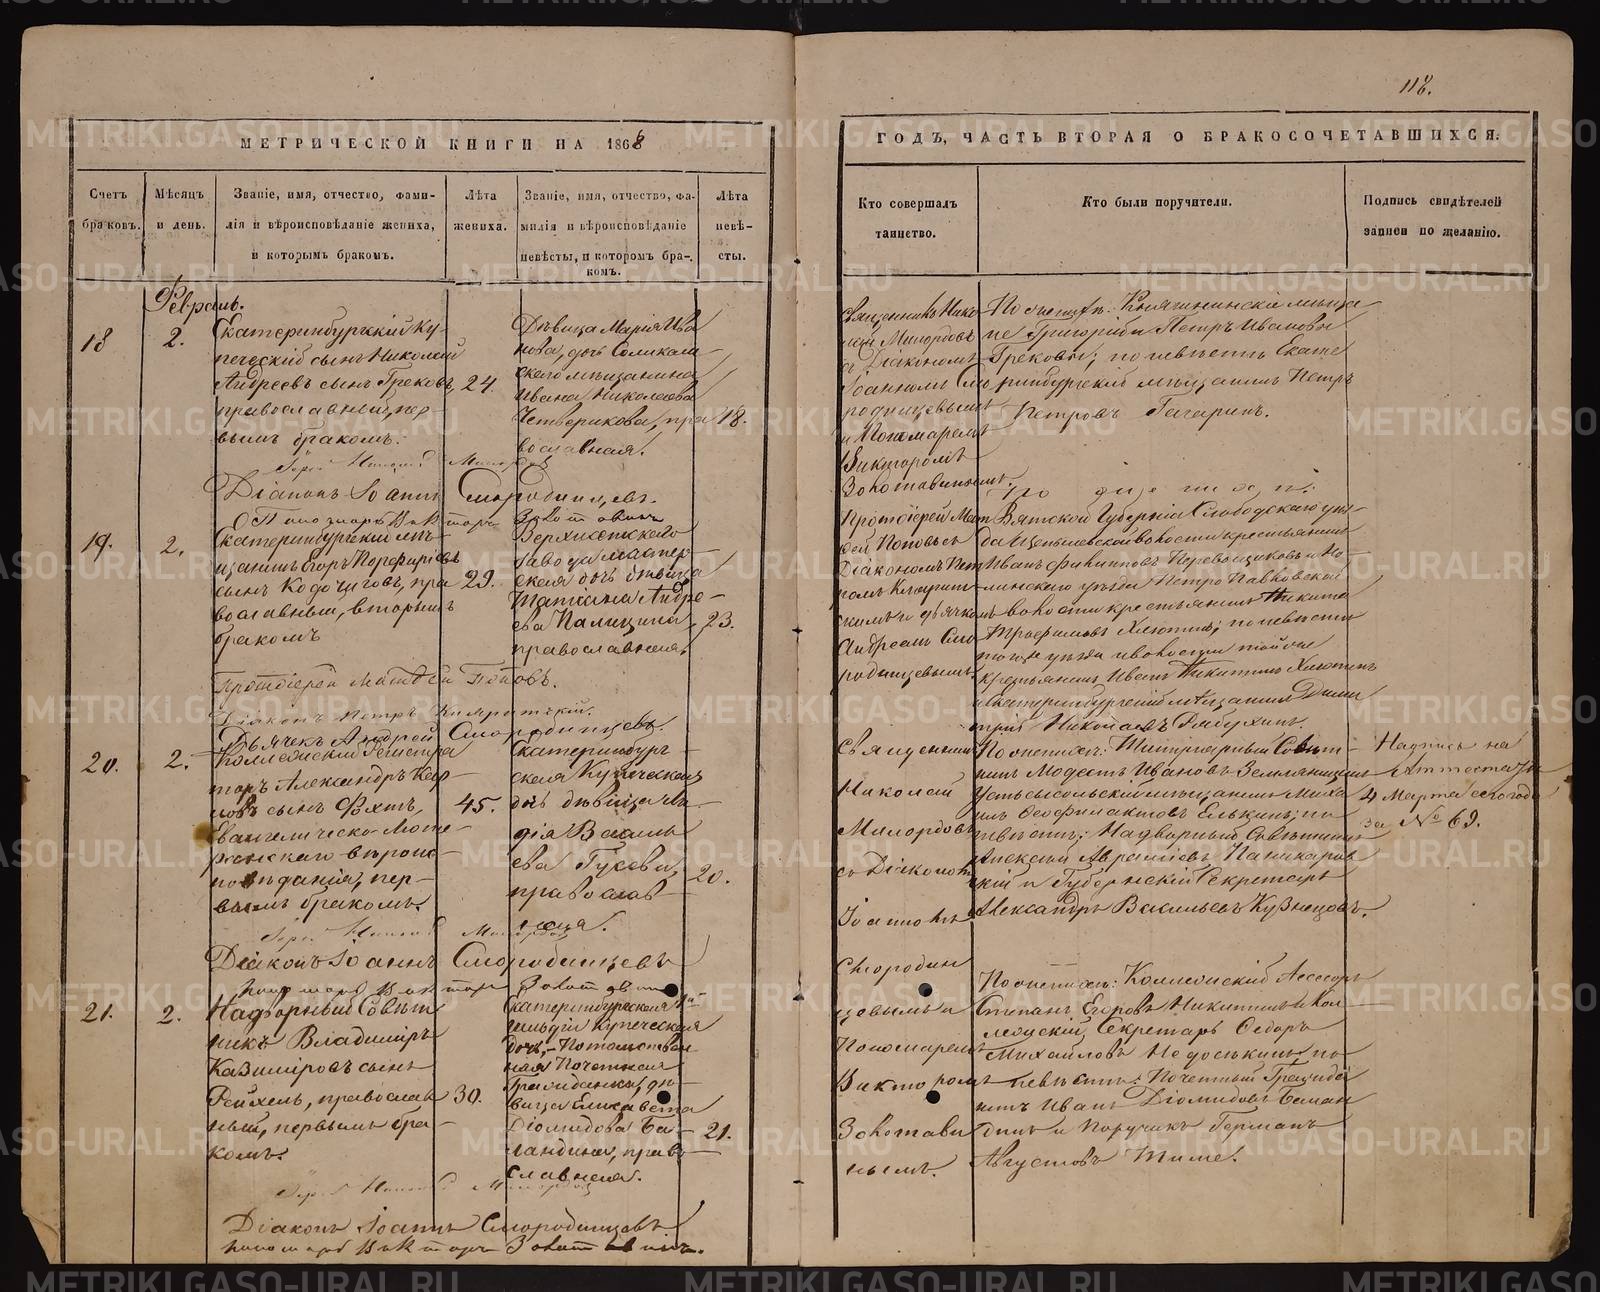 118.
МЕТРИЧЕСКОЙ КНИГИ НА 1868
ГОДЪ, ЧАСТЬ ВТОРАЯ О БРАКОСОЧЕТАВШИХСЯ:
Счетъ
браковъ.
Мѣсяцъ
и день.
Званіе, имя, отчество, фами-
лія и вѣроисповѣданіе жениха,
и которымъ бракомъ.
Лѣта
жениха.
Званіе, имя, отчество, фа-
милія и вѣроисповѣданіе
невѣсты, и которомъ бра-
комъ.
Лѣта
невѣ-
сты.
Кто совершалъ
таинство.
Кто были поручители.
Подпись свидѣтелей
записи по желанію.
Февраль.
18
2.
Екатеринбургскій ку-
печескій сынъ Николай
Андреевъ сынъ Грековъ,
православный, пер-
вымъ бракомъ.
24.
Дѣвица Марія Ива
нова, дочь Соликам-
скаго мѣщанина
Ивана Николаева
Четверикова, пра
вославная.
18.
Священникъ Нико
лай Милордовъ
съ Діакономъ
Іоанномъ Смо
родинцевымъ
и Пономаремъ
Викторомъ
Золотавинымъ.
Григорій и Петръ Ивановы
Грековы; по невѣстѣ Екате
ринбургскій мѣщанинъ Петръ
Петровъ Гагаринъ.
Діаконъ Іоаннъ Смородинцевъ.
19.
2.
Екатеринбургскій мѣ-
щанинъ Егоръ Порфирьевъ
сынъ Кодочиговъ, пра
вославный, вторымъ
бракомъ
29.
Верхисетскаго
завода мастер-
ская дочь дѣвица
Татіана Андре-
ева Палицина,
православная,
23.
Протоіерей Мат
ѳей Поповъ съ
Діакономъ Пет
ромъ
и дьячкомъ
Андреемъ Смо
родинцевымъ.
Вятской Губерніи Слободскаго уѣз-
да волости крестьянинъ
Иванъ Филипповъ Перевощиковъ и
уѣзда Петро Павловской
волости крестьянинъ Никита
Трофимовъ Хлюпинъ; по невѣстѣ
того уѣзда и волости той же
крестьянинъ Иванъ Никитинъ Хлюпинъ
и Екатеринбургскій мѣщанинъ Дими
трій Николаевъ
Протоіерей Матѳей Поповъ.
Діаконъ Петръ
Дьячекъ Андрей Смородинцевъ.
20.
2.
Коллежскій Регистра
торъ Александръ Кар-
ловъ сынъ Фохтъ,
Евангелическо-Люте-
ранскаго вѣроис-
повѣданія, пер-
вымъ бракомъ.
45.
Екатеринбург-
ская Купеческая
дочь дѣвица Ли-
дія Василь
ева Гусева,
православ
ная.
20.
Священникъ
Николай
Милордовъ
съ Діакономъ
Іоанномъ
Смородин
цевымъ и
Пономаремъ
Викторомъ
Золотави
нымъ.
По женихѣ: Титулярный Совѣт-
никъ Модестъ Ивановъ Земляницынъ
Устьсысольскій мѣщанинъ Миха
илъ Ѳеофилактовъ Елькинъ; по
невѣстѣ: Надворный Совѣтникъ
Алексѣй Авраміевъ
и Губернскій Секретарь
Александръ Васильевъ Кузнецовъ.
Надпись на
Аттестатѣ
4 Марта сего года
за № 69.
Діаконъ Іоаннъ Смородинцевъ
21.
2.
Надворный Совѣт
никъ Владиміръ
Казиміровъ сынъ
Рейхель, православ
ный, первымъ бра-
комъ.
30.
Екатеринбургская
гильдіи купеческая
дочь, - Потомствен
ная Почетная
Гражданка, дѣ-
вица Елисавета
Діомидова Ба-
ландина, право
славная.
21.
По женихѣ: Коллежскій Ассесоръ
Степанъ Егоровъ Никитинъ и Кол
лежскій Секретарь Ѳедоръ
Михайловъ Недосѣкинъ, по
невѣстѣ: Почетный Гражда
нинъ Иванъ Діомидовъ Балан
динъ и Поручикъ Германъ
Августовъ Тиме.
Діаконъ Іоаннъ Смородинцевъ
Пономарь Викторъ Золотавинъ.
METRIKI.GASO-URAL.RU